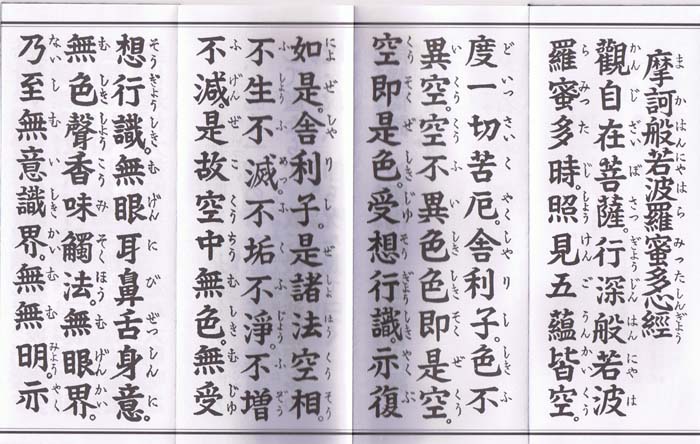 摩訶般若波羅蜜多心經
まかはんにやはらみつたしんぎよう
觀自在菩薩。行深般若波
かんじざいぼさつぎようじんはんにやは
羅蜜多時。照見五蘊皆空。
らみつたじしようけんごうんかいくう
度一切苦厄。舍利子。色不
どいつさいくやくしやりししきふ
異空。空不異色色即是空。
いくうくうふいしきしきそくぜくう
空即是色。受想行識。亦復
くうそくぜしきじゆそうぎようしきやくぶ
如是。舍利子。是諸法空相。
によぜしやりしぜしよほうくうそう
不生不滅。不垢不淨。不增
ふしようふめつふくふじようふぞう
不減。是故空中無色。無受
ふげんぜこくうちうむしきむじゆ
想行識。無眼耳鼻舌身意。
そうぎようしきむげんにびぜつしんに
無色聲香味觸法。無眼界。
むしきしようこうみそくほうむげんかい
乃至無意識界。無無明。亦
ないしむいしきかいむむみようやく